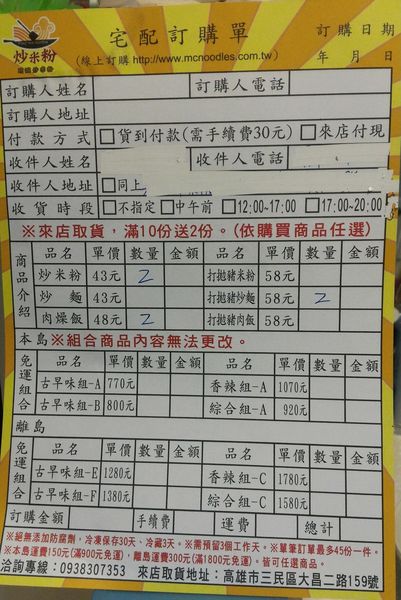 炒米粉
宅配訂購單
訂購日期
(線上訂購 http://www.mcnoodles.com.tw)
年 月 日
訂購人姓名 訂購人電話
訂購人地址
付款方式 □貨到付款(需手續費30元) □來店付現
收件人姓名 收件人電話
收件人地址 □同上
收貨時段 □不指定 □中午前 □12:00~17:00 □17:00~20:00
※來店取貨，滿10份送2份。(依購買商品任選)
商品介紹
品名 單價 數量 金額 品名 單價 數量 金額
炒米粉 43元 2 打拋豬米粉 58元
炒麵 43元 打拋豬炒麵 58元 2
肉燥飯 48元 2 打拋豬肉飯 58元
本島※組合商品內容無法更改。
免運組合
品名 單價 數量 金額 品名 單價 數量 金額
古早味組-A 770元 香辣組-A 1070元
古早味組-B 800元 綜合組-A 920元
離島
免運組合
品名 單價 數量 金額 品名 單價 數量 金額
古早味組-E 1280元 香辣組-C 1780元
古早味組-F 1380元 綜合組-C 1580元
訂購金額 手續費 運費 總計
※絕無添加防腐劑，冷凍保存30天、冷藏3天。※需預留3個工作天。※單筆訂單最多45份一件。
※本島運費150元(滿900元免運)，離島運費300元(滿1800元免運)。皆可任選商品。
洽詢專線：0938307353 來店取貨地址：高雄市三民區大昌二路159號